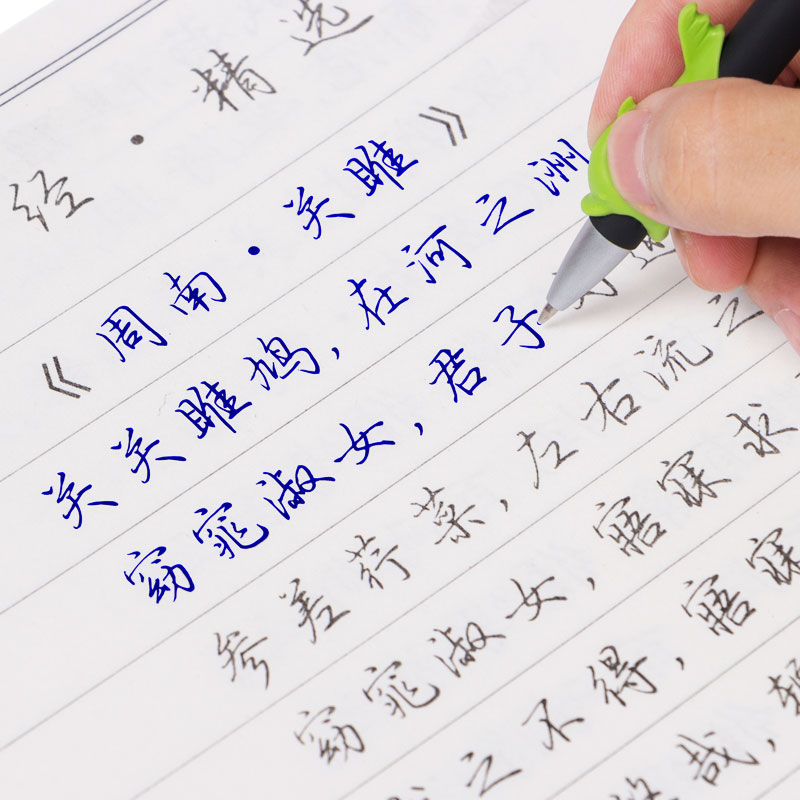 经·精选
《周南·关雎》
关关雎鸠，在河之洲
窈窕淑女，君子
参差荇菜，左右流之
窈窕淑女，寤寐求
之不得，寤寐
哉，